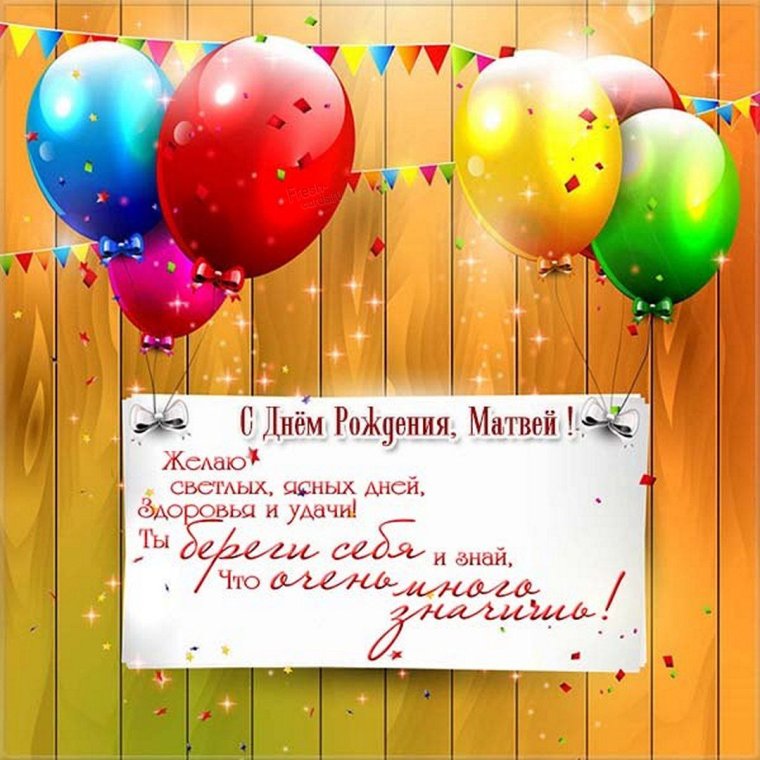 С Днём Рождения, Матвей !
Желаю
светлых, ясных дней,
Здоровья и удачи!
Ты береги себя и знай,
Что очень много
значишь!